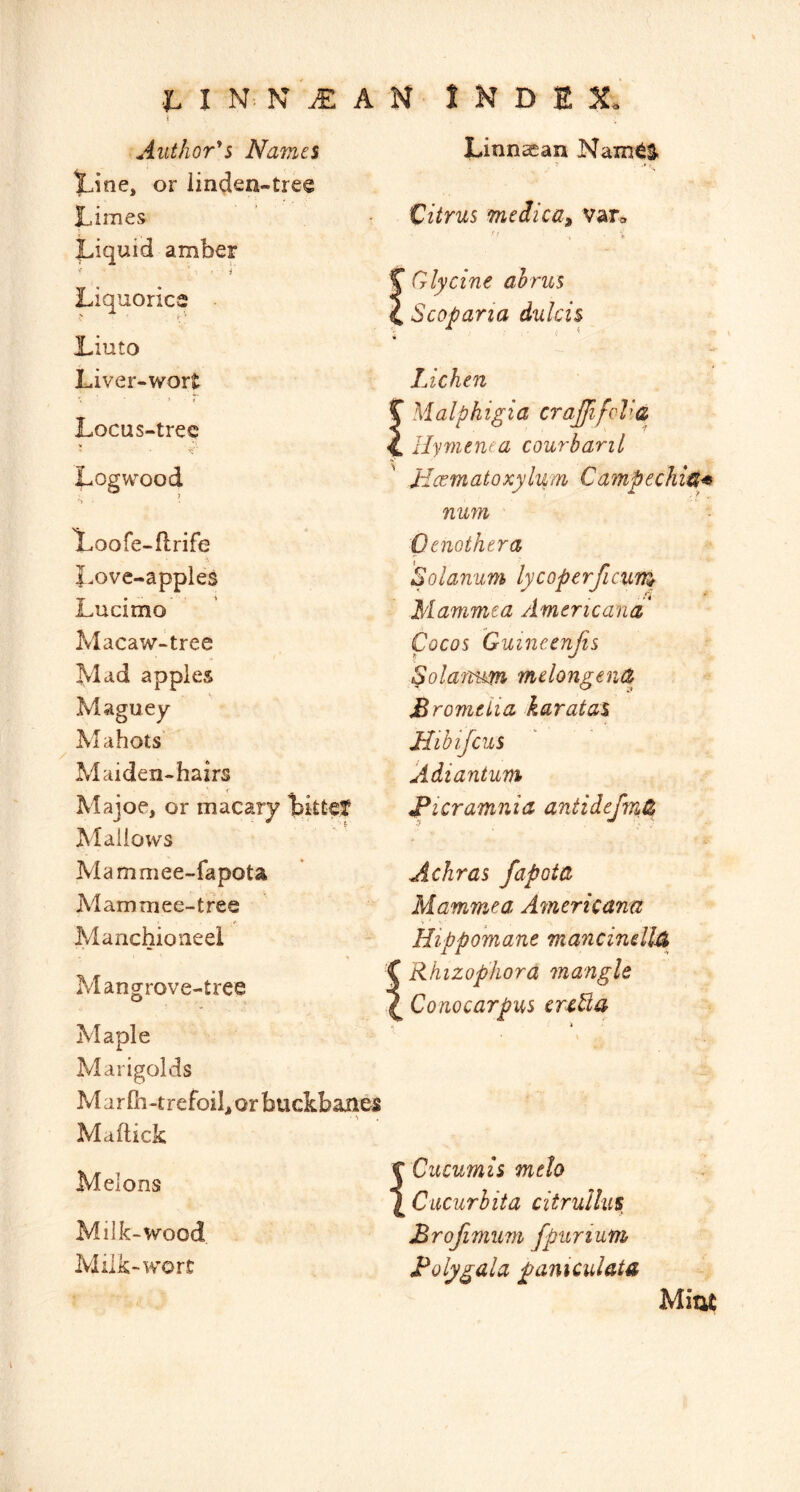 LINNÆAN INDEX.
Author's Names Linnæan Names
Line, or linden-tree
Limes Citrus medica, var.
Liquid amber
Liquorice { Glycine abrus
{ Scoparia dulcis
Liuto
Liver-wort Lichen
Locus-tree { Malphigia craſſifolia
{ Hymenea courbaril
Logwood Hæmatoxylum Campechia-
num
Looſe-ſtrife Oenothera
Love-apples Solanum lycoperſicum
Lucimo Mammea Americana
Macaw-tree Cocos Guineenſis
Mad apples Solanum melongena
Maguey Bromelia karatas
Mahots Hibiſcus
Maiden-hairs Adiantum
Majoe, or macary bitter Picramnia antideſma
Mallows
Mammee-ſapota Achras ſapota
Mammee-tree Mammea Americana
Manchioneel Hippomane mancinella
Mangrove-tree { Rhizophora mangle
{ Conocarpus erecta
Maple
Marigolds
Marſh-trefoil, or buckbanes
Maſtick
Melons { Cucumis melo
{ Cucurbita citrullus
Milk-wood Broſimum ſpurium
Milk-wort Polygala paniculata
Mint